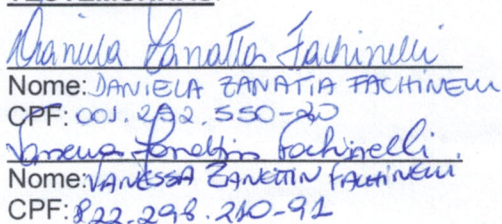 TESTEMUNHAS:
Daniela Zanatta Fachinelli
Nome: DANIELA ZANATTA FACHINELLI
CPF: 001.292.550-20
Vanessa Zanettin Fachinelli.
Nome: VANESSA ZANETTIN FACHINELLI
CPF: 822.298.210-91